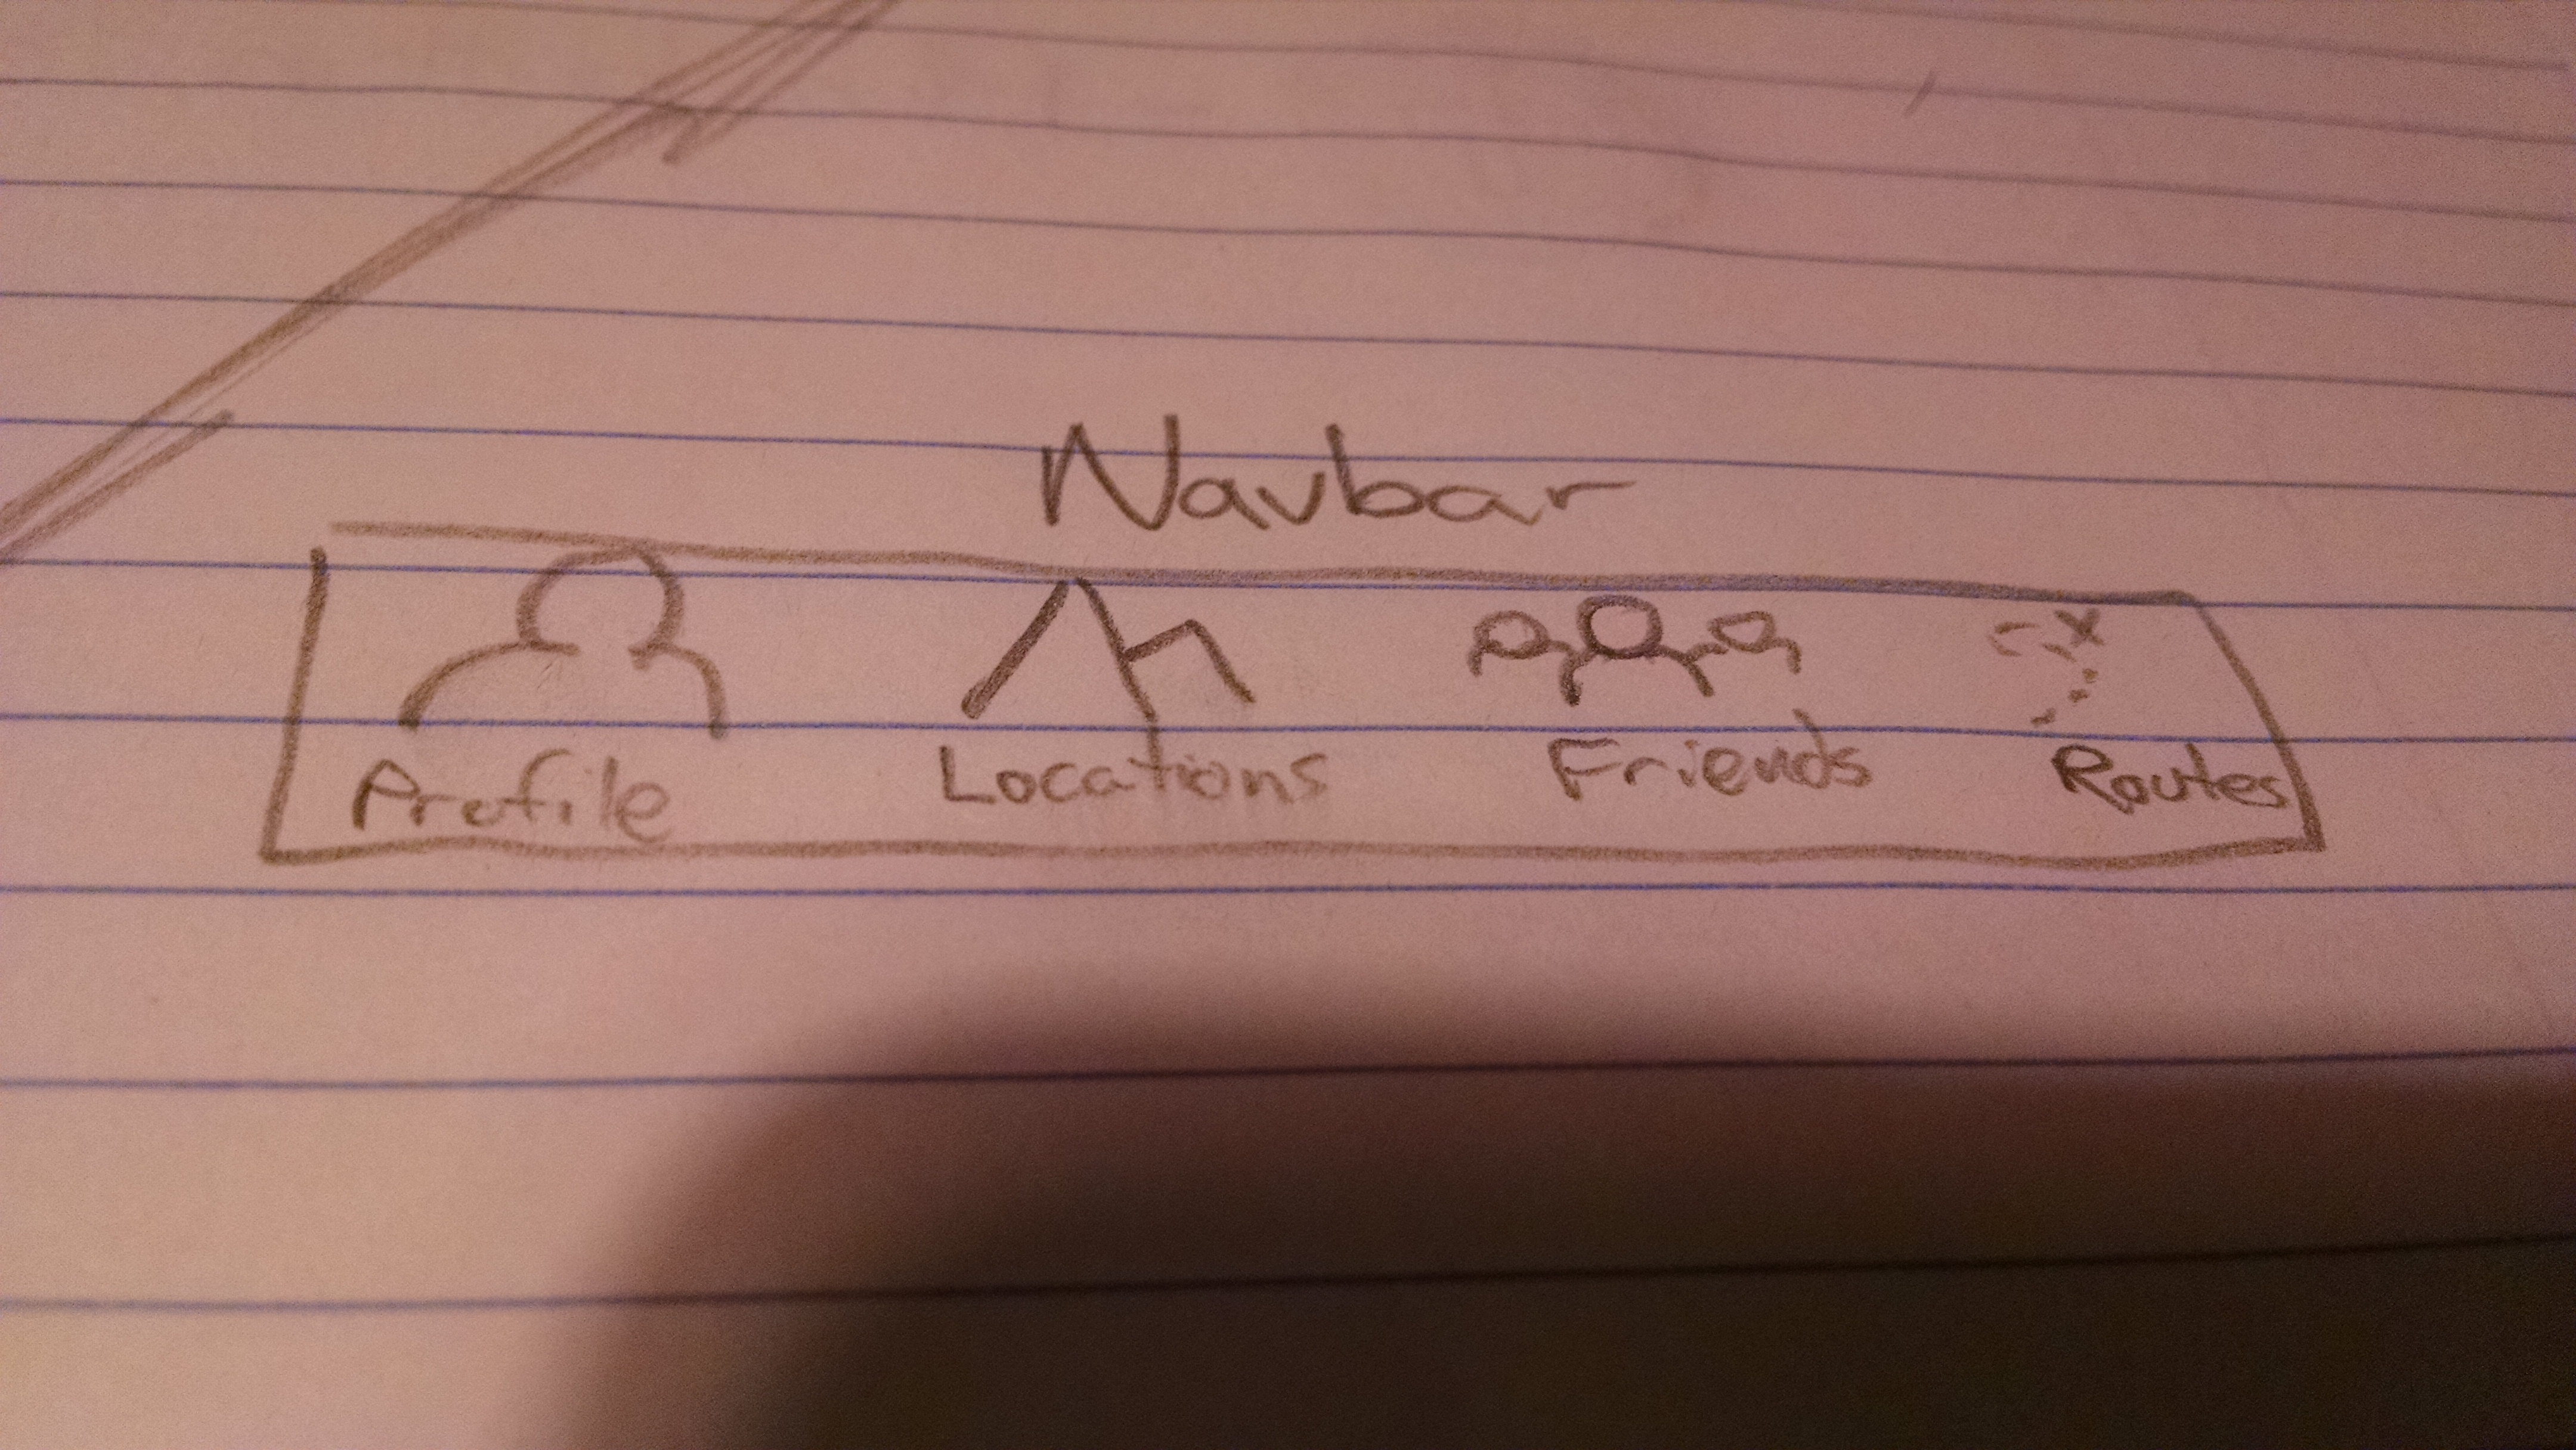 Navbar
Profile Locations Friends Routes